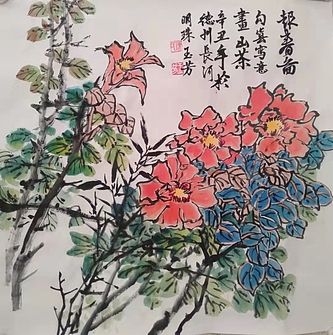 報春圖
勾筆寫意
畫山茶
辛丑年於
德州長河
明珠玉芳